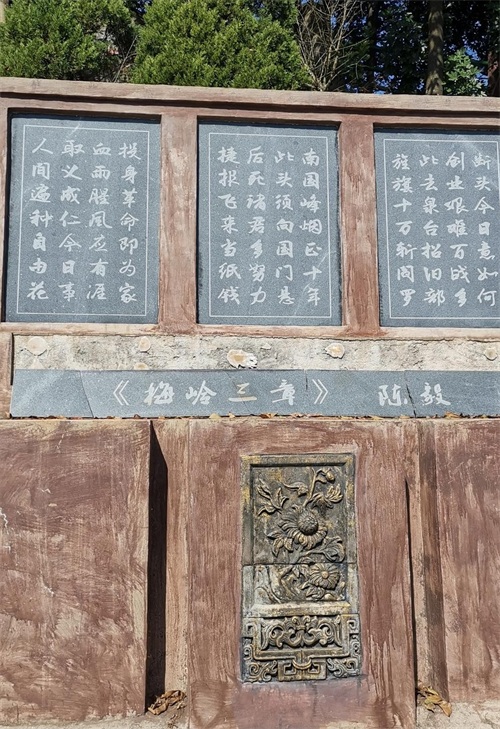 断头今日意如何
创业艰难百战多
此去泉台招旧部
旌旗十万斩阎罗
南国峰烟正十年
此头须向国门悬
后死诸君多努力
捷报飞来当纸钱
投身革命即为家
血雨腥风应有涯
取义成仁今日事
人间遍种自由花
《梅岭三章》 陈毅